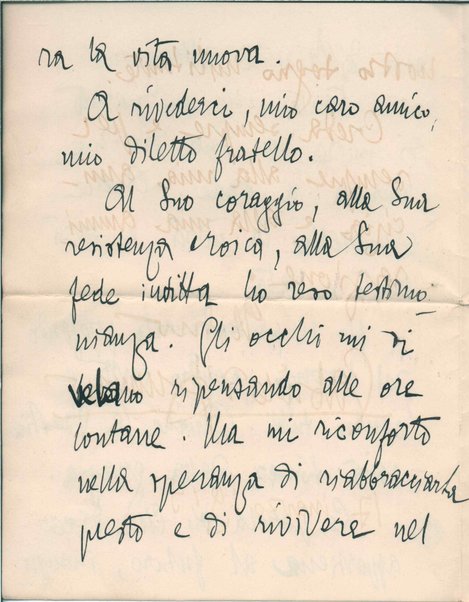 ra la vita nuova.
A rivederci, mio caro amico,
mio diletto fratello.
Al Suo coraggio, alla Sua
resistenza eroica, alla Sua
fede invitta ho reso testimo-
nianza. Gli occhi mi si
velano ripensando alle ore
lontane. Ma mi riconforto
nella speranza di riabbracciarla
presto e di rivivere nel